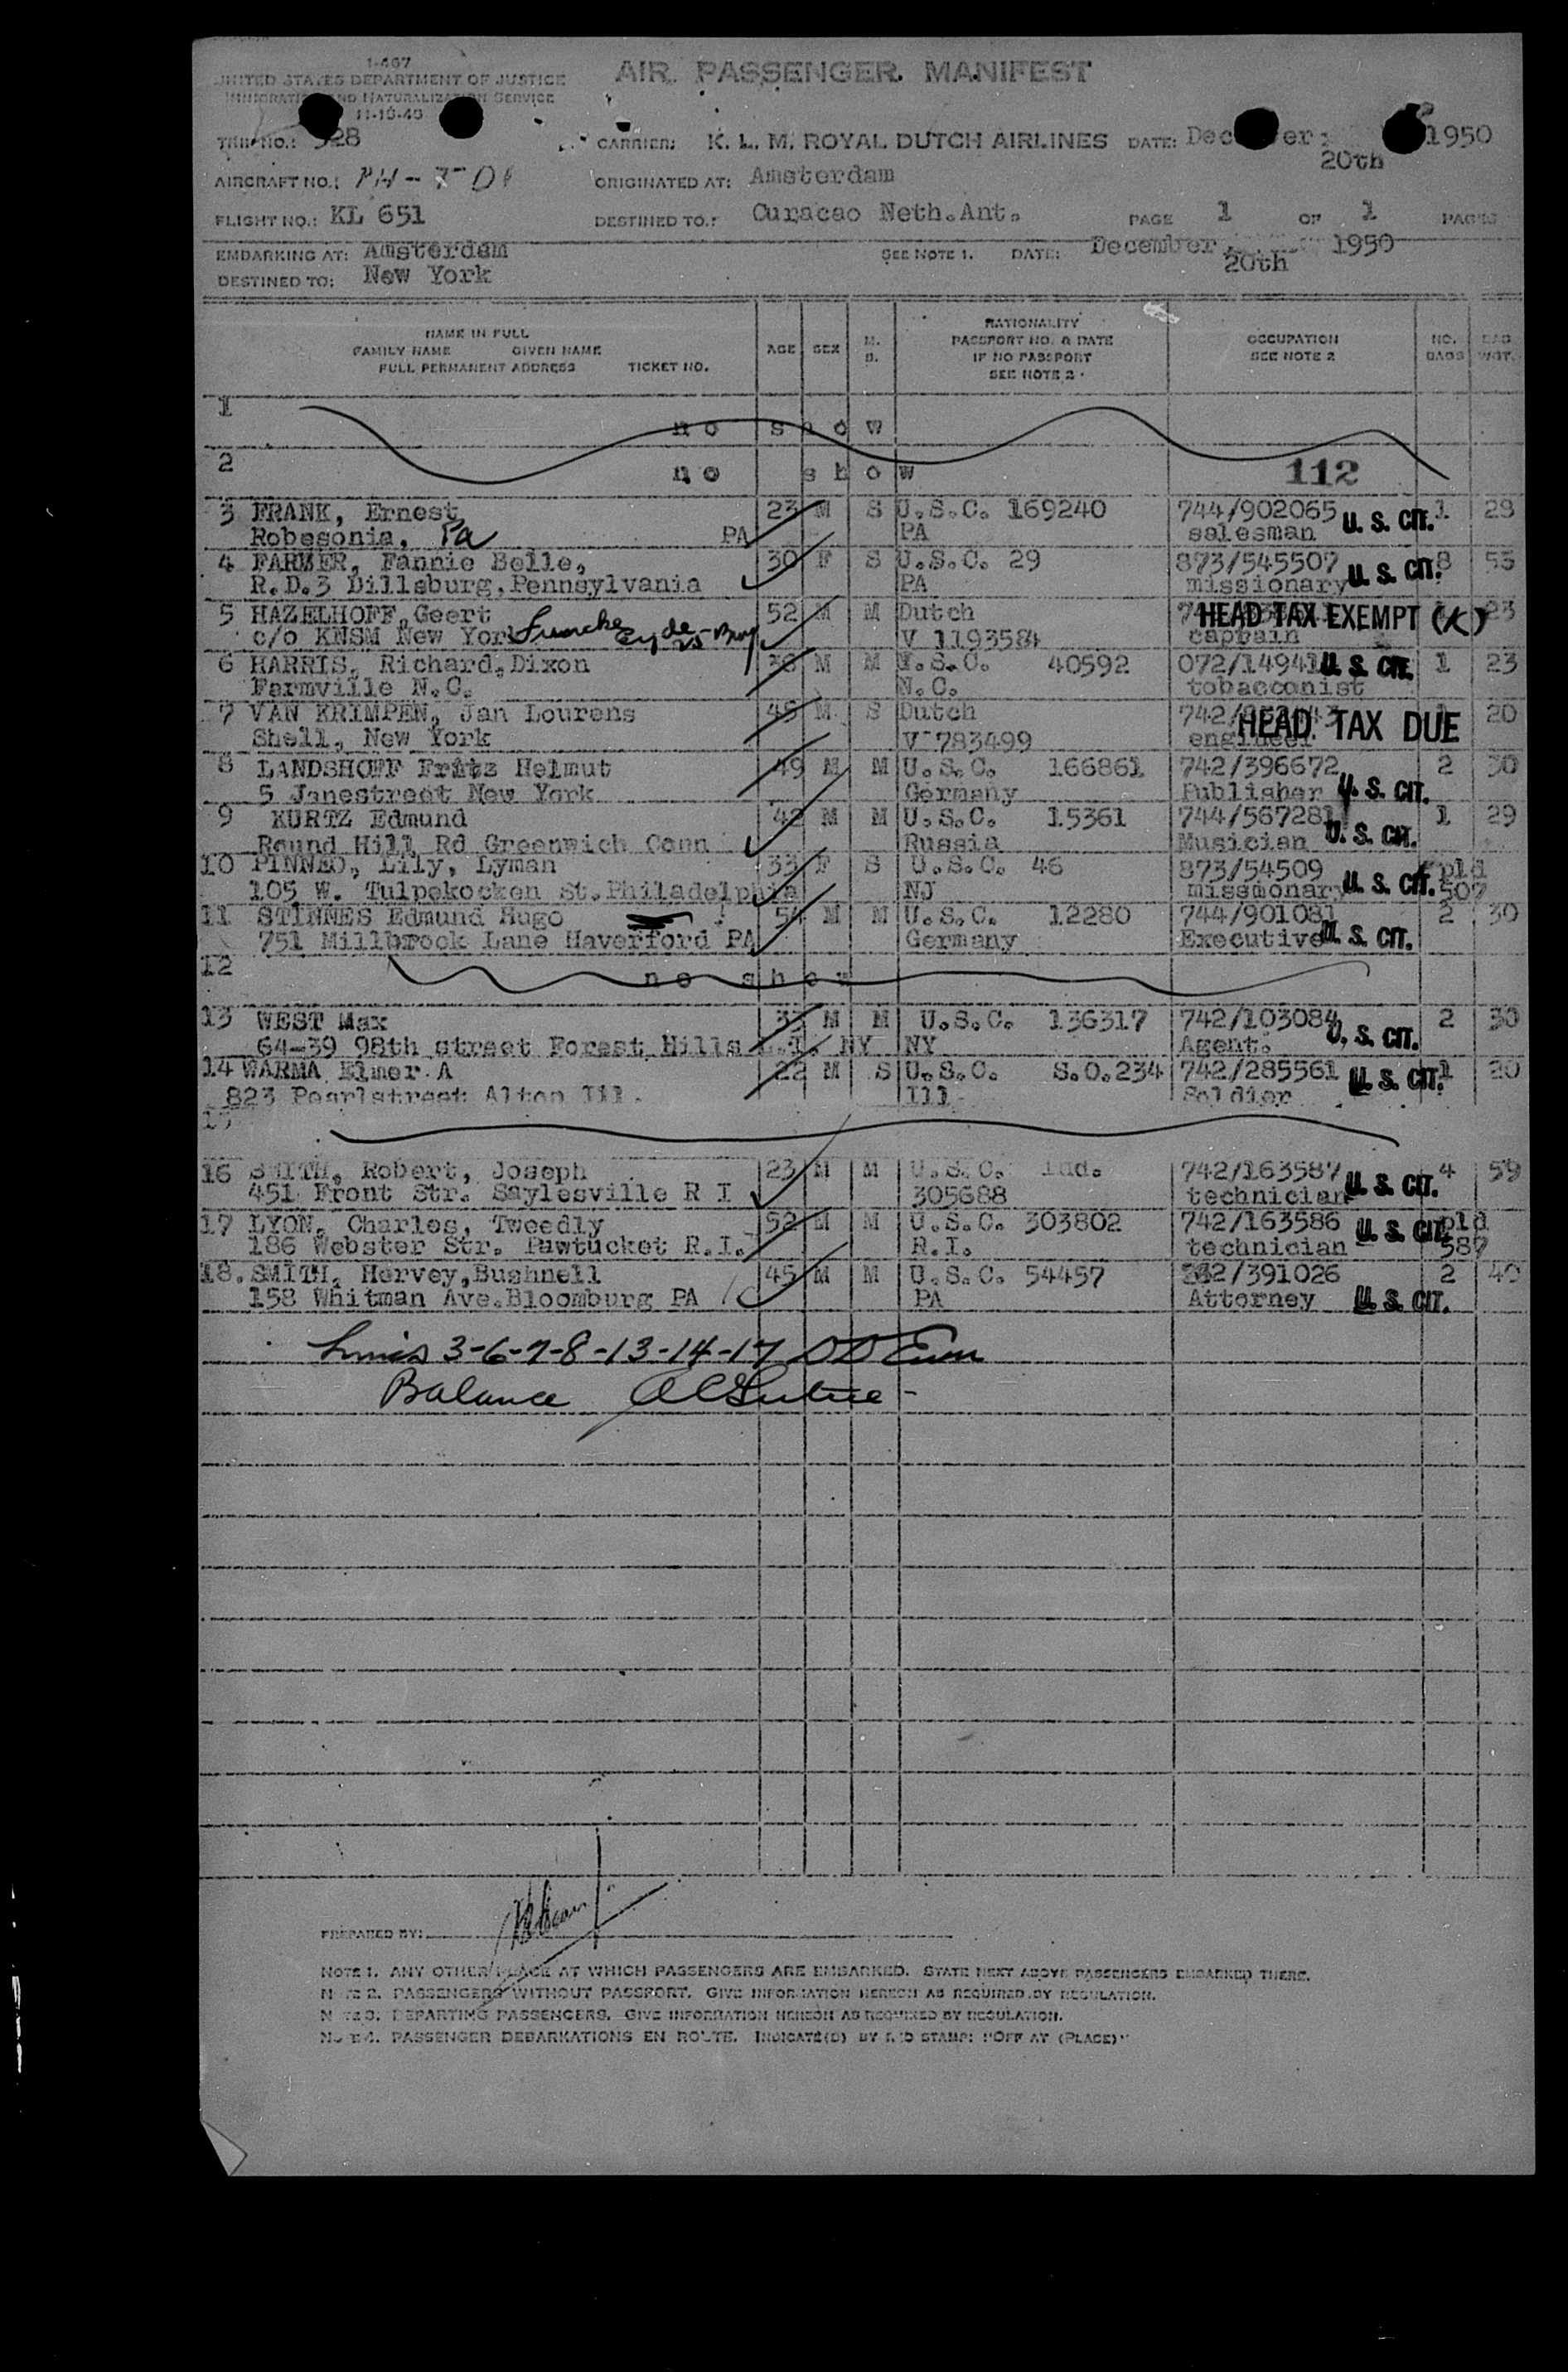 I-467
UNITED STATES DEPARTMENT OF JUSTICE
IMMIGRATION AND NATURALIZATION SERVICE
11-10-40
AIR PASSENGER MANIFEST
TRIP NO.: 928 CARRIER: K. L. M. ROYAL DUTCH AIRLINES DATE: Dec er 20th 1950
AIRCRAFT NO.: PH- ORIGINATED AT: Amsterdam
FLIGHT NO.: KL 651 DESTINED TO.: Curacao Neth.Ant. PAGE 1 OF 1 PAGES
EMBARKING AT: Amsterdam SEE NOTE 1. DATE: December 20th 1950
DESTINED TO: New York
NAME IN FULL
FAMILY NAME GIVEN NAME
FULL PERMANENT ADDRESS TICKET NO.
AGE SEX M. S.
NATIONALITY
PASSPORT NO. & DATE
IF NO PASSPORT
SEE NOTE 2
OCCUPATION
SEE NOTE 2
NO. BAGS
BAG WGT.
1 no show
2 no show 112
3 FRANK, Ernest 23 M S U.S.C. 169240 744/902065 U. S. CIT. 1 28
Robesonia, Pa PA PA salesman
4 FARMER, Fannie Belle, 30 F S U.S.C. 29 873/545507 U. S. CIT. 8 55
R.D.3 Dillsburg,Pennsylvania PA missionary
5 HAZELHOFF,Geert 52 M M Dutch HEAD TAX EXEMPT (K) 23
c/o KNSM New York V 1193584 captain
6 HARRIS, Richard,Dixon M M U.S.C. 40592 072/14941 U. S. CIT. 1 23
Farmville N.C. N.C. tobacconist
7 VAN KRIMPEN, Jan Lourens 45 M S Dutch HEAD TAX DUE 20
Shell, New York V 783499 engineer
8 LANDSHOFF Fritz Helmut 49 M M U.S.C. 166861 742/396672 2 30
5 Janestreet New York Germany Publisher U. S. CIT.
9 KURTZ Edmund 42 M M U.S.C. 15361 744/567281 1 29
Round Hill Rd Greenwich Conn Russia Musician U. S. CIT.
10 PINNEO, Lily, Lyman 33 F S U.S.C. 46 873/54509 pld
105 W. Tulpekocken St.Philadelphia NJ missionary U. S. CIT. 507
11 STINNES Edmund Hugo 54 M M U.S.C. 12280 744/901081 2 30
751 Millbrook Lane Haverford PA Germany Executive U. S. CIT.
12 no show
13 WEST Max 33 M M U.S.C. 136317 742/103084 2 30
64-39 98th street Forest Hills L.I. NY NY Agent. U. S. CIT.
14 WARMA Elmer A 22 M S U.S.C. S.O.234 742/285561 U. S. CIT. 1 20
823 Pearlstreet Alton Ill. Ill Soldier
15
16 SMITH, Robert, Joseph 23 M M U.S.C. Ind. 742/163587 U. S. CIT. 4 59
451 Front Str. Saylesville R I 305688 technician
17 LYON, Charles, Tweedly 52 M M U.S.C. 303802 742/163586 U. S. CIT. pld
186 Webster Str. Pawtucket R.I. R.I. technician 587
18. SMITH, Hervey,Bushnell 45 M M U.S.C. 54457 /391026 2 40
158 Whitman Ave.Bloomburg PA PA Attorney U. S. CIT.
3-6-7-8-13-14-17
Balance
PREPARED BY:
NOTE 1. ANY OTHER PLACE AT WHICH PASSENGERS ARE EMBARKED. STATE NEXT ABOVE PASSENGERS EMBARKED THERE.
NOTE 2. PASSENGERS WITHOUT PASSPORT. GIVE INFORMATION HEREON AS REQUIRED BY REGULATION.
NOTE 3. DEPARTING PASSENGERS. GIVE INFORMATION HEREON AS REQUIRED BY REGULATION.
NOTE 4. PASSENGER DEBARKATIONS EN ROUTE. INDICATE(D) BY RED STAMP: "OFF AT (PLACE)"